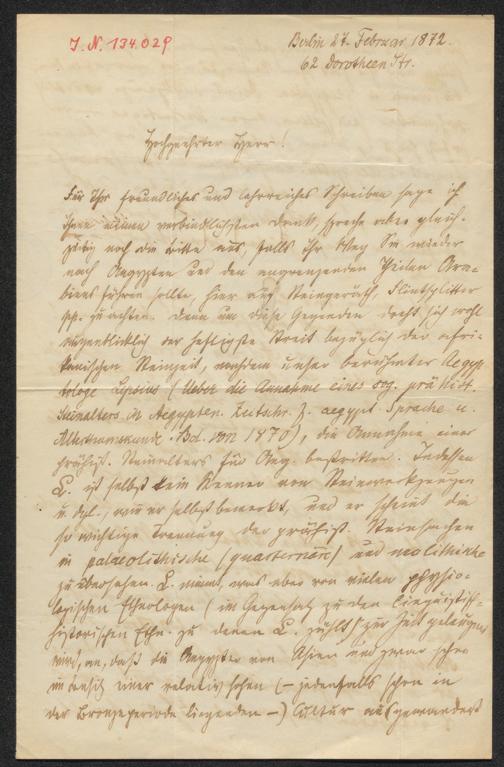 J. N. 134.029
Berlin 27. Februar 1872.
62 Dorotheen Str.
Hochgeehrter Herr!
Für Ihr freundliches und lehrreiches Schreiben sage ich
Ihnen meinen verbindlichsten Dank, spreche aber gleich-
zeitig noch die Bitte aus, falls Ihr Weg Sie wieder
nach Aegypten und den angrenzenden Theilen Ara-
biens führen sollte, hier auf Steingeräth, Flintsplitter
pp. zu achten. Denn um diese Gegenden dreht sich wohl
augenblicklich der heftigste Streit bezüglich der afri-
kanischen Steinzeit, nachdem unser berühmter Aegyp-
tologe Lepsius (Ueber die Annahme eines sog. prähist.
Steinalters in Aegypten. Zeitschr. f. aegypt. Sprache u.
Alterthumskunde. Bd. von 1870), die Annahme eines
prähist. Steinalters für Aeg. bestritten. Indessen
L. ist selbst kein Kenner von Steinwerkzeugen
u. dgl., wie er selbst bemerkt, und er scheint die
so wichtige Trennung der prähist. Steinsachen
in palaeolithische (quaternären) und neolithische
zu übersehen. L. nimmt, was aber von vielen physio-
logischen Ethnologen (im Gegensatz zu den linguistisch-
historischen Ethn. zu denen L. zählt) zur Zeit geleugnet
wird, an, daß die Aegypter von Asien und zwar schon
im Besitz einer relativ hohen (– jedenfalls schon in
der Bronzeperiode liegenden –) Cultur ausgewandert